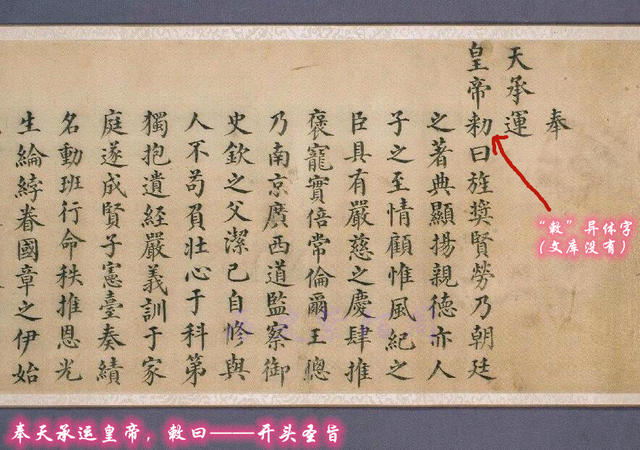 奉
天承運
皇帝勅曰旌奬賢勞乃朝廷
之著典顯揚親德亦人
子之至情顧惟風紀之
臣具有嚴慈之慶肆推
褒寵實倍常倫爾王總
乃南京廣西道監察御
史欽之父潔己自修與
人不苟負壯心于科第
獨抱遺經嚴義訓于家
庭遂成賢子憲臺奏績
名動班行命秩推恩光
生綸綍眷國章之伊始
“敕”异体字
（文库没有）
奉天承运皇帝，敕曰——开头圣旨